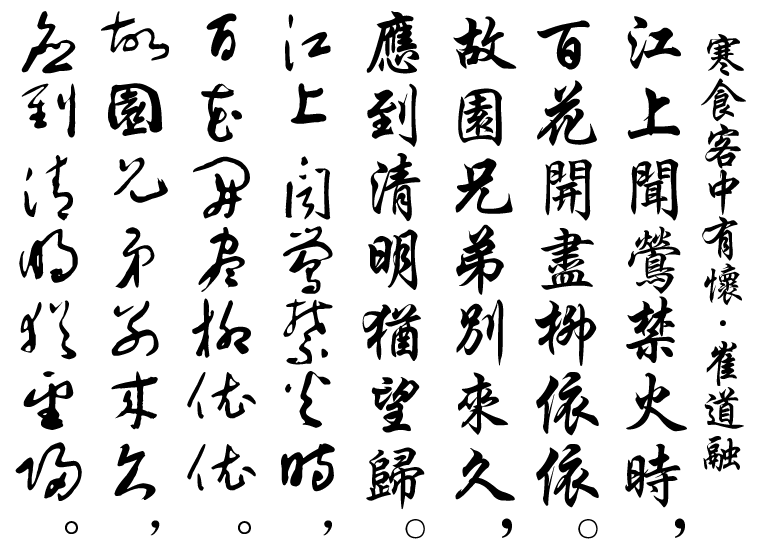 寒食客中有懷·崔道融
江上聞鶯禁火時，
百花開盡柳依依。
故園兄弟別來久，
應到清明猶望歸。
江上闻莺禁火时，
百花开尽柳依依。
故園兄弟别来久，
应到清明犹望归。